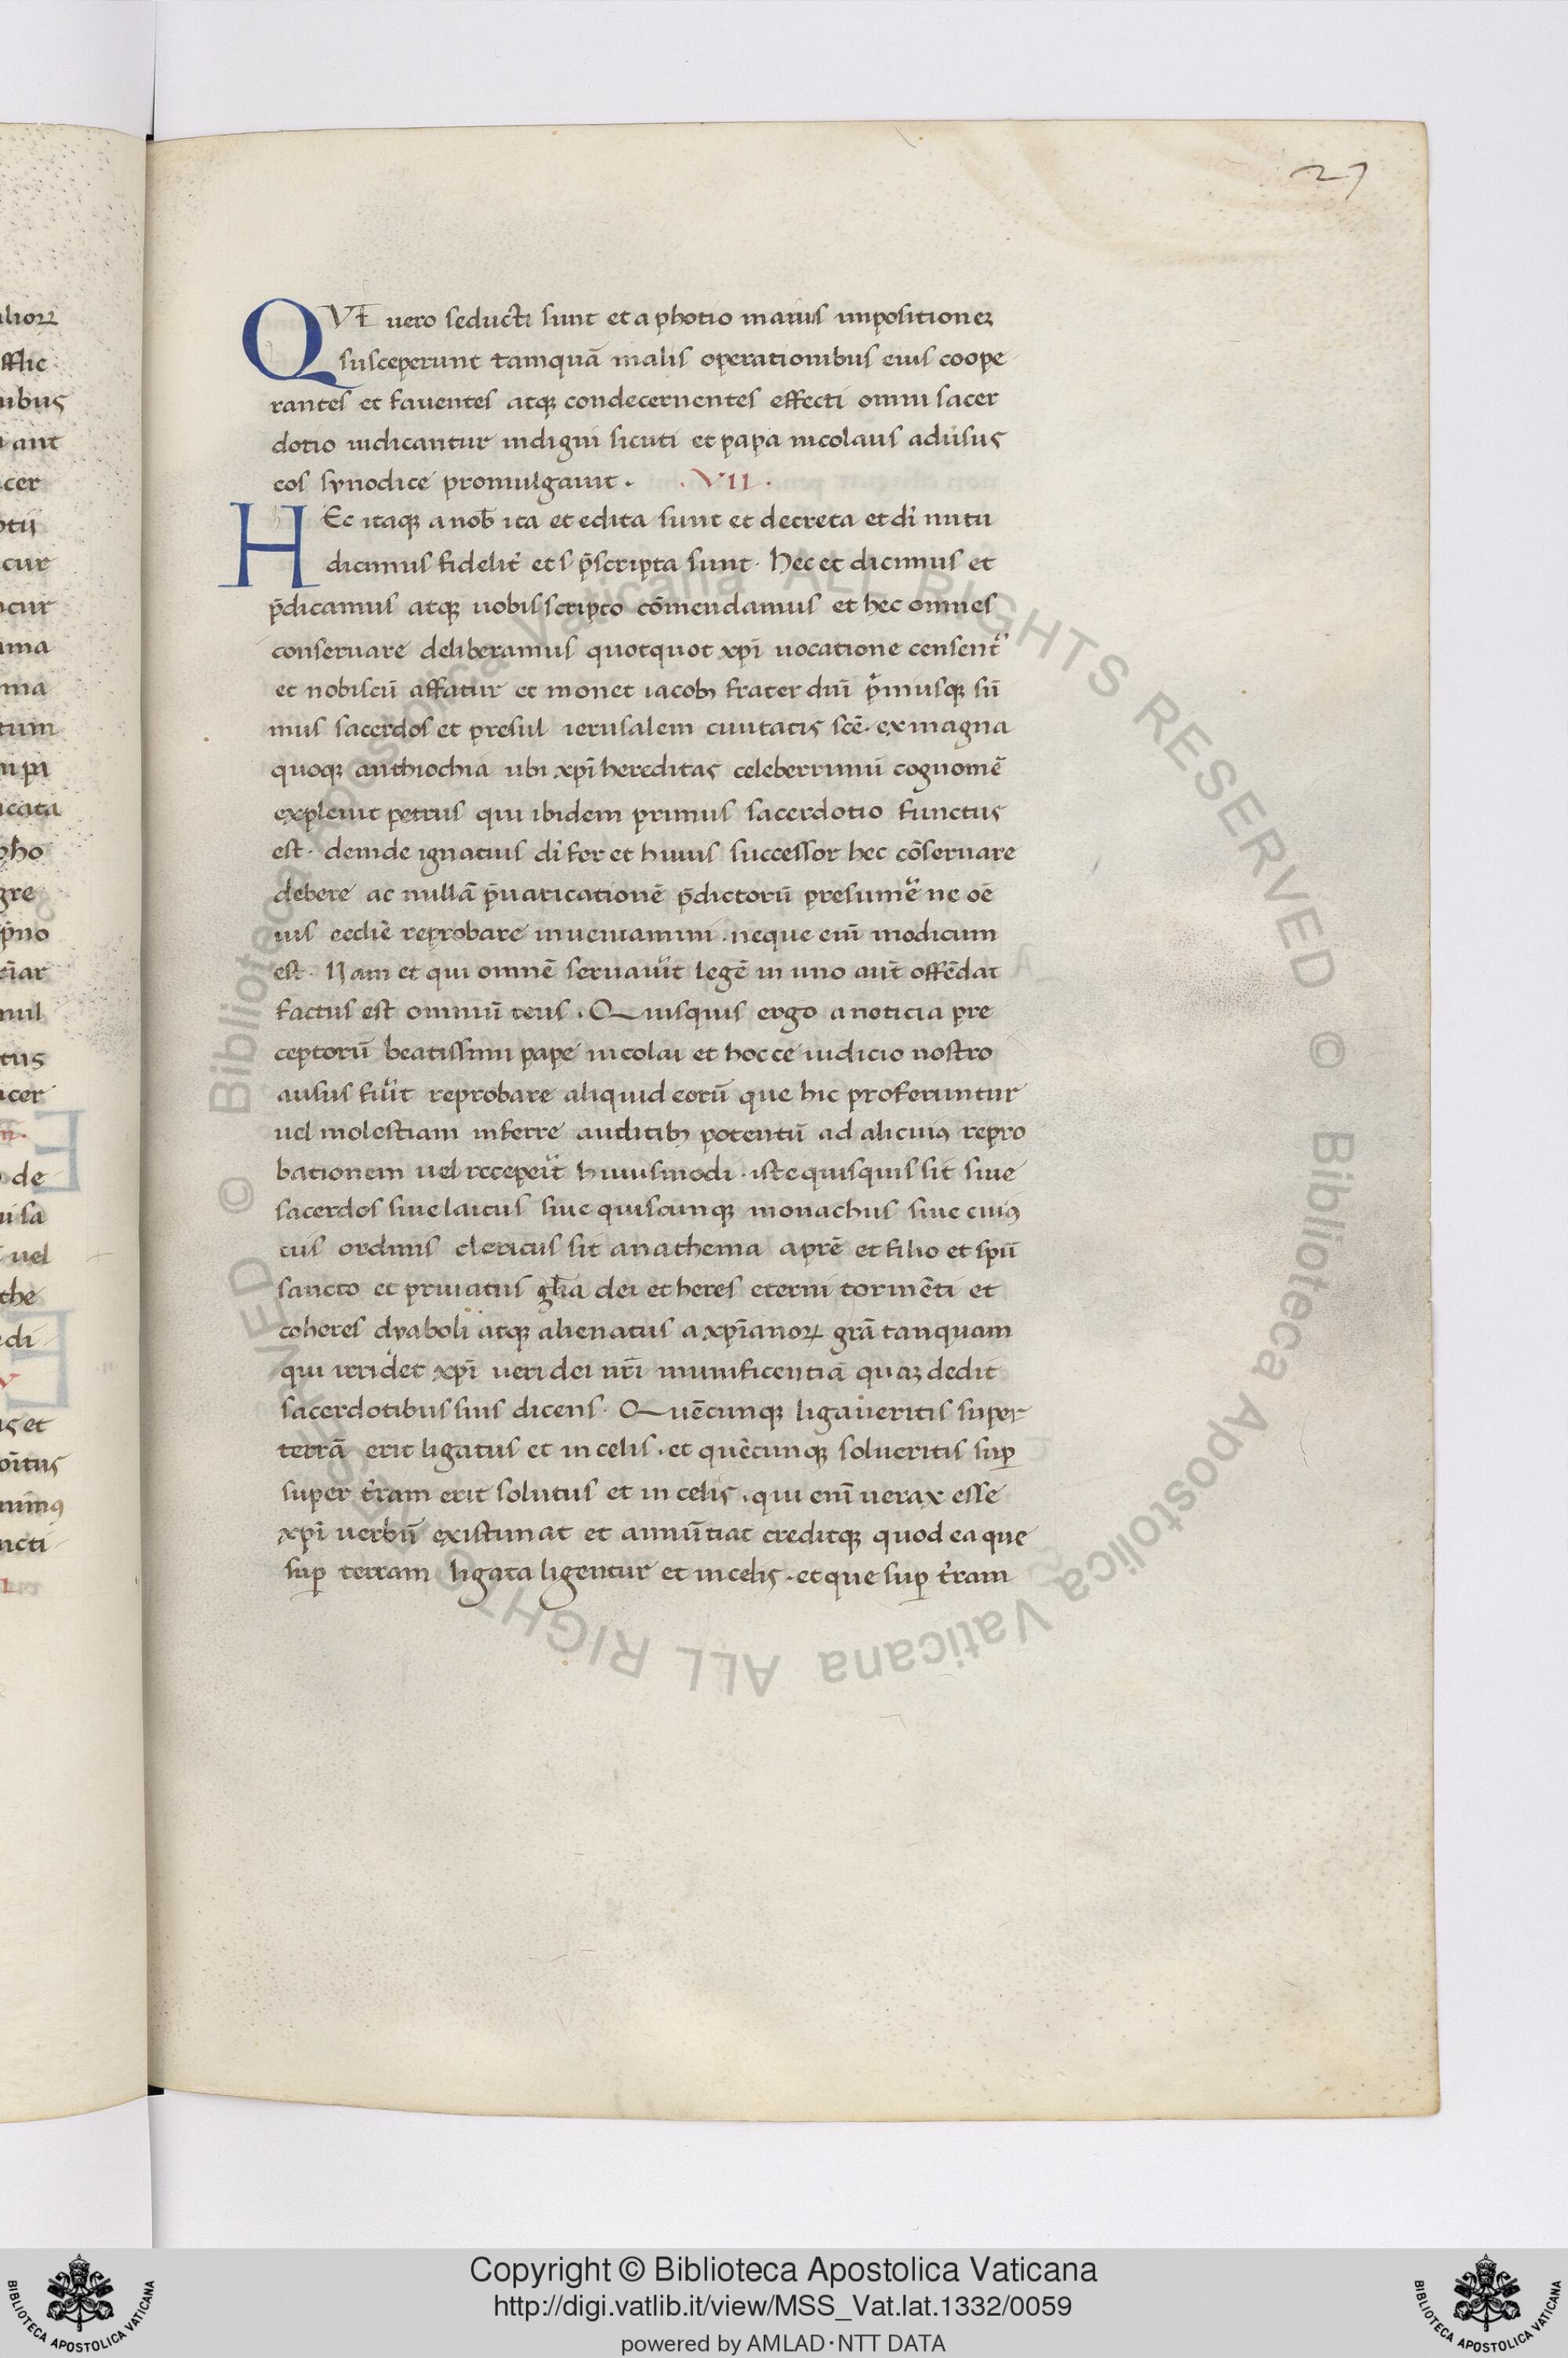 27
QVI vero seducti sunt et a photio manus impositionēʒ
susceperunt tamquā malis operationibus eius coope
rantes et faventes atqʒ condecernentes effecti omni sacer
dotio iudicantur indigni sicuti et papa nicolaus adūsus
eos synodice promulgavit . . VII .
HEc itaqʒ a nob̄ ita et edita sunt et decreta et dī nutu
dicimus fidelit̄ et s p̄scripta sunt . Hec et dicimus et
p̄dicamus atqʒ vobis scripto cōmendamus et hec omnes
conservare deliberamus quotquot xpī vocatione censent᷑
et nobiscū affatur et monet iacobꝫ frater dnī p̄musqʒ sū
mus sacerdos et presul ierusalem civitatis scē . ex magna
quoqʒ anthiochia ubi xpī hereditas celeberrimū cognomē
explevit petrus qui ibidem primus sacerdotio functus
est . deinde ignatius dī fer et huius successor hec cōservare
debere ac nullā p̄varicationē p̄dictorū presumē᷑ ne oē
ius eccliē reprobare inveniamini . neque enī modicum
est . Nam et qui omnē servav᷑it legē in uno aut̄ offēdat
factus est omniū reus . Quisquis ergo a noticia pre
ceptorū beatissimi pape nicolai et hocce iudicio nostro
ausus fu᷑it reprobare aliquid eorū que hic proferuntur
vel molestiam inferre auditibꝫ potentū ad alicuiꝰ repro
bationem vel recepe᷑it huiusmodi . iste quisquis sit sive
sacerdos sive laicus sive quiscunqʒ monachus sive cuiꝰ
cus ordinis clericus sit anathema a prē et filio et spū
sancto et privatus glīa dei et heres eterni tormēti et
coheres dyaboli atqʒ alienatus a xpīanoꝝ grā tanquam
qui irridet xpī veri dei nrī munificentiā quaʒ dedit
sacerdotibus suis dicens . Quēcunqʒ ligaveritis super
terrā erit ligatus et in celis . et quēcunqʒ solveritis suꝑ
super t̄ram erit solutus et in celis . qui enī verax esse
xpī verbū existimat et annūtiat creditqʒ quod ea que
suꝑ terram ligata ligentur et in celis . et que suꝑ t̄ram
Copyright © Biblioteca Apostolica Vaticana
http://digi.vatlib.it/view/MSS_Vat.lat.1332/0059
powered by AMLAD·NTT DATA